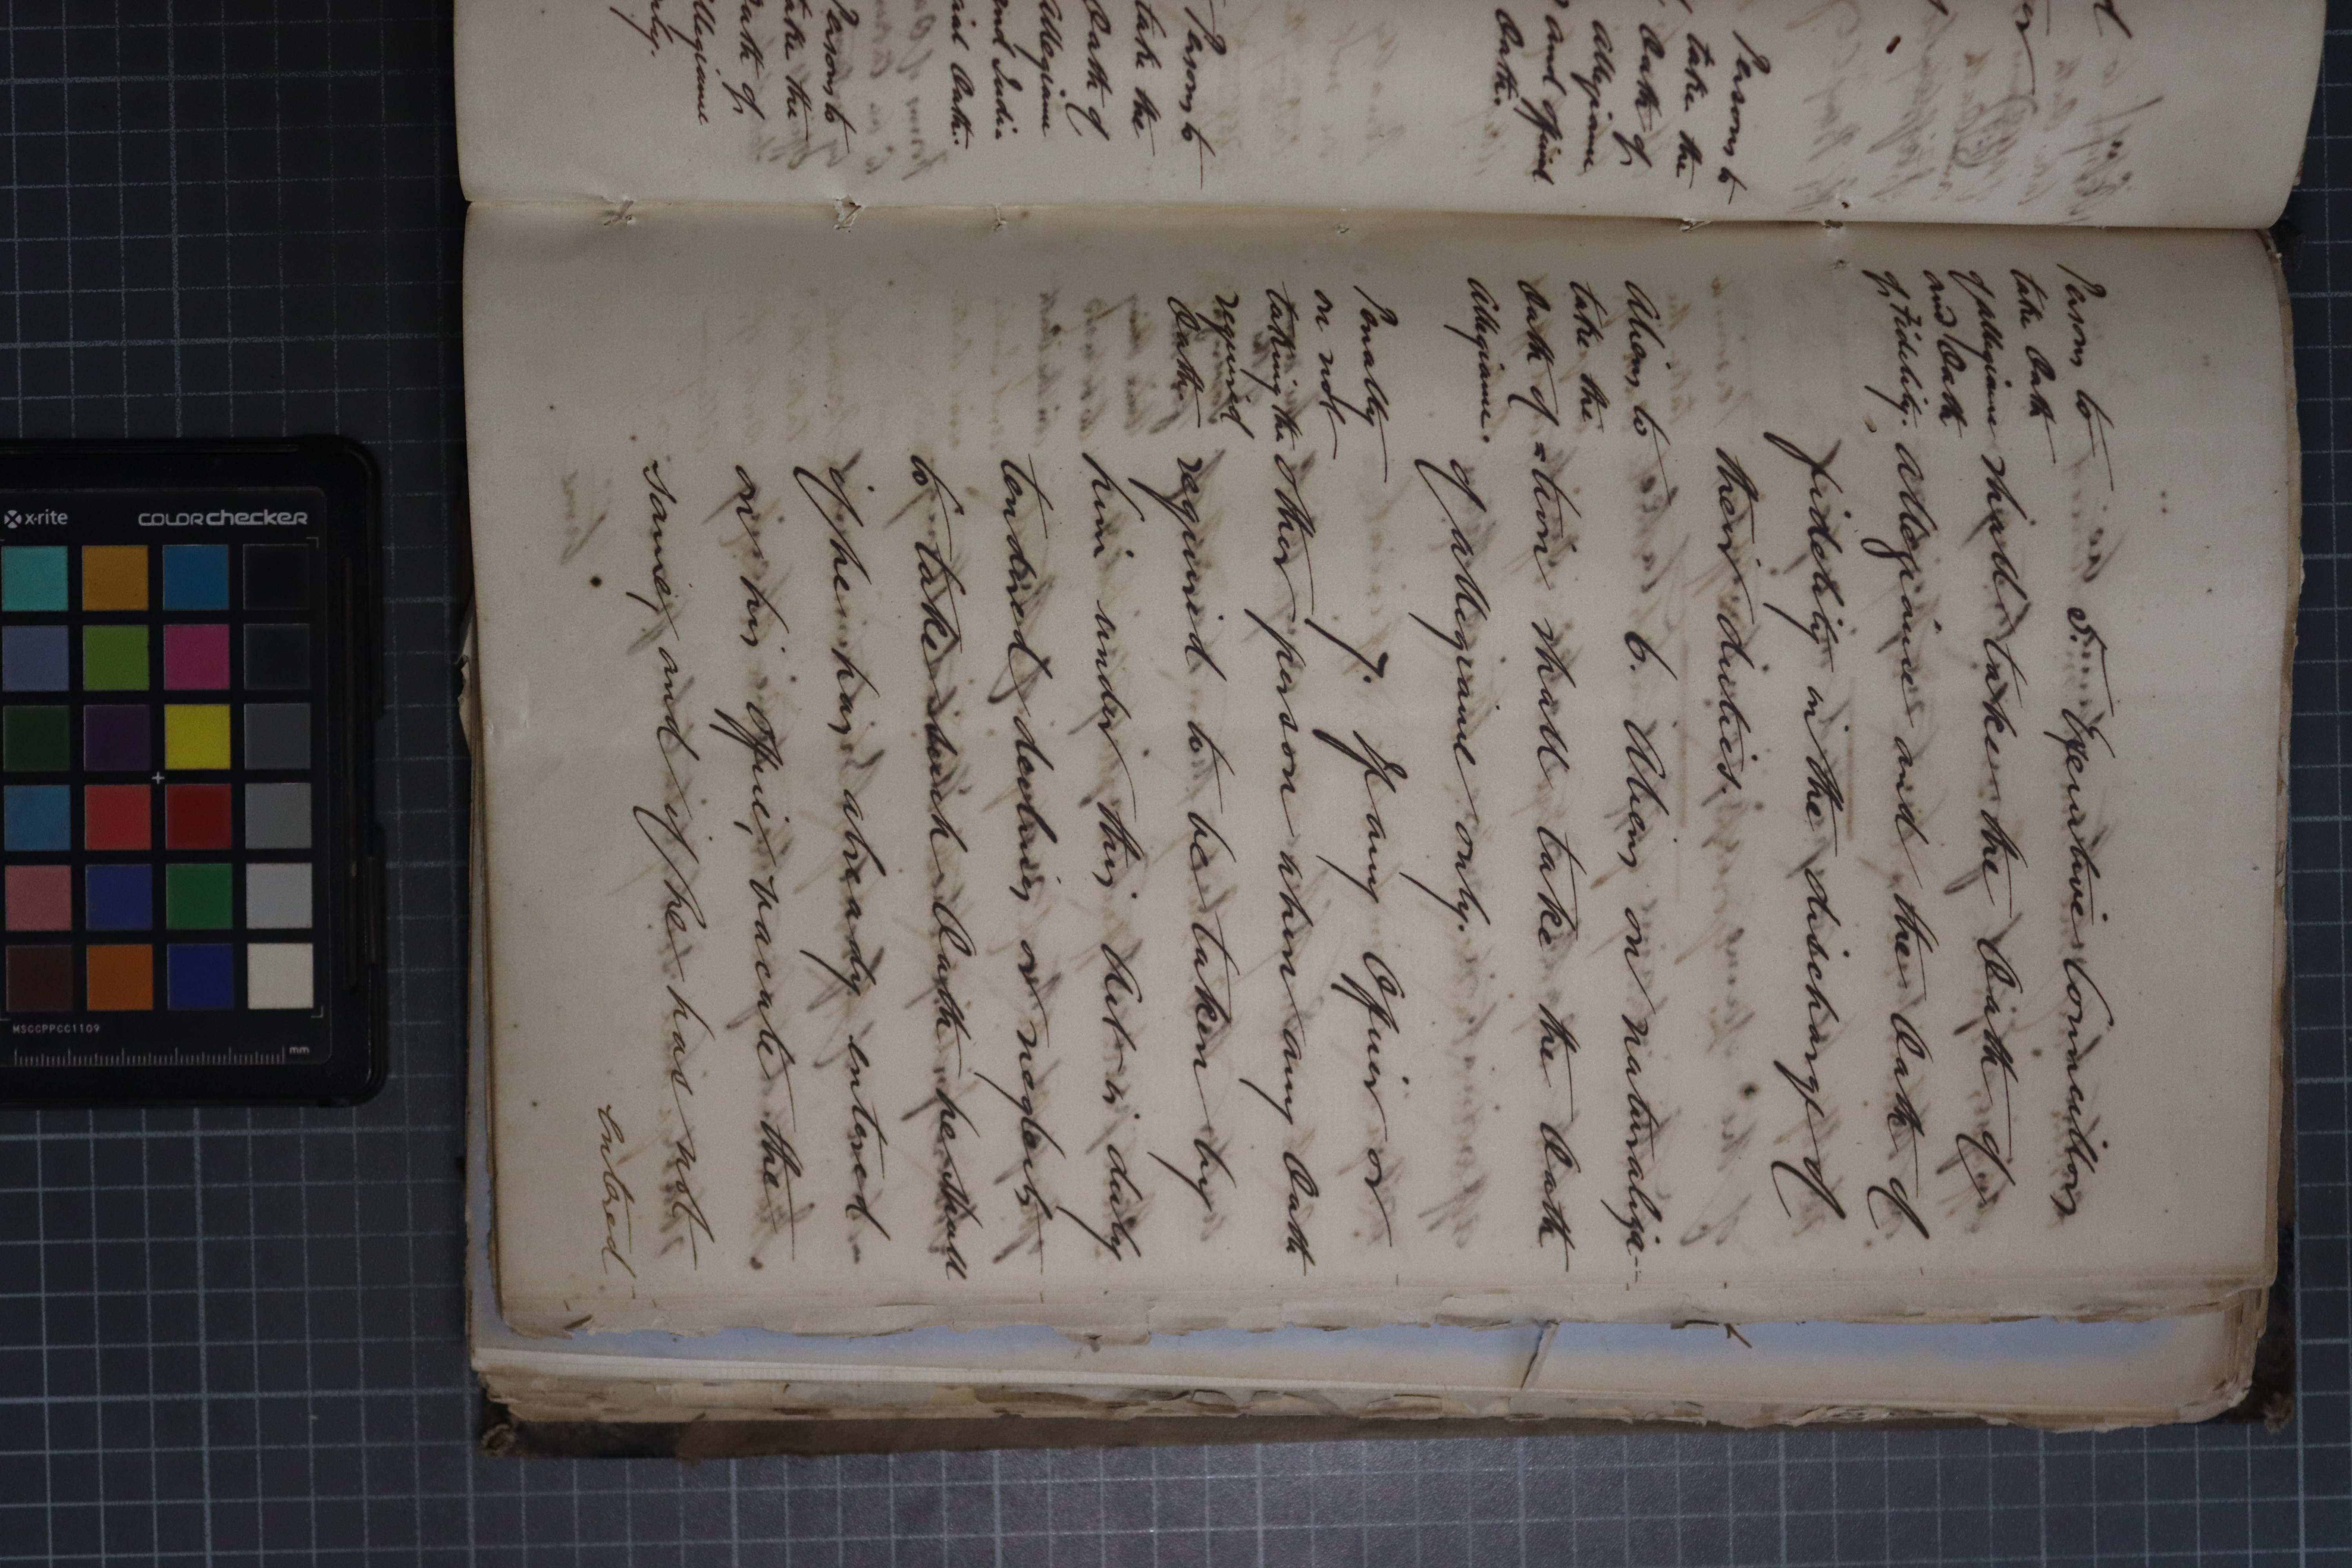 Persons to
take the
Oath of
Allegiance
and official
Oath.
Persons to
take the
Oath of
Allegiance
and Judi=
cial Oath.
Persons to
take the
Oath of
Allegiance
only.
Persons to
take Oath
of allegiance
and Oath
of Fidelity.
5. Executive Councillors
shall take the Oath of
allegiance and the Oath of
fidelity in the discharge of
their duties.
Aliens to
take the
Oath of
Allegiance.
6. Aliens on naturaliza-
=tion shall take the Oath
of allegiance only.
Penalty
on not
taking the
required
Oath.
7. If any Officer or
other person when any Oath
required to be taken by
him under this Act is duly
tendered declines or neglects
to take such Oath he shall
if he has already entered
on his office, vacate the
same, and if he has not
entered
x-rite
colorchecker
MSCCPPCC1109
mm